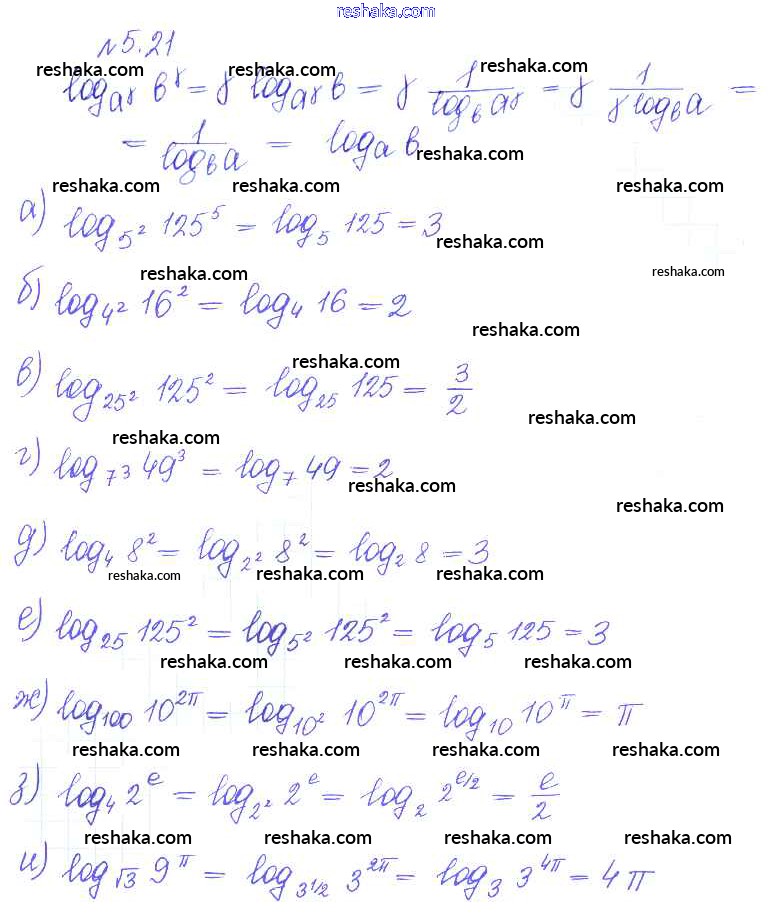 reshaka.com
№5.21
reshaka.com reshaka.com reshaka.com
log_{a^γ} b^γ = γ log_{a^γ} b = γ 1/(log_b a^γ) = γ 1/(γ log_b a) =
= 1/(log_b a) = log_a b reshaka.com
reshaka.com reshaka.com reshaka.com
а) log_{5^2} 125^5 = log_5 125 = 3
reshaka.com
reshaka.com reshaka.com
б) log_{4^2} 16^2 = log_4 16 = 2
reshaka.com
reshaka.com
в) log_{25^2} 125^2 = log_{25} 125 = 3/2
reshaka.com
reshaka.com
г) log_{7^3} 49^3 = log_7 49 = 2
reshaka.com
reshaka.com
д) log_4 8^2 = log_{2^2} 8^2 = log_2 8 = 3
reshaka.com reshaka.com reshaka.com
е) log_{25} 125^2 = log_{5^2} 125^2 = log_5 125 = 3
reshaka.com reshaka.com reshaka.com
ж) log_{100} 10^{2π} = log_{10^2} 10^{2π} = log_{10} 10^π = π
reshaka.com reshaka.com reshaka.com reshaka.com
з) log_4 2^e = log_{2^2} 2^e = log_2 2^{e/2} = e/2
reshaka.com reshaka.com reshaka.com reshaka.com
и) log_{√3} 9^π = log_{3^{1/2}} 3^{2π} = log_3 3^{4π} = 4π